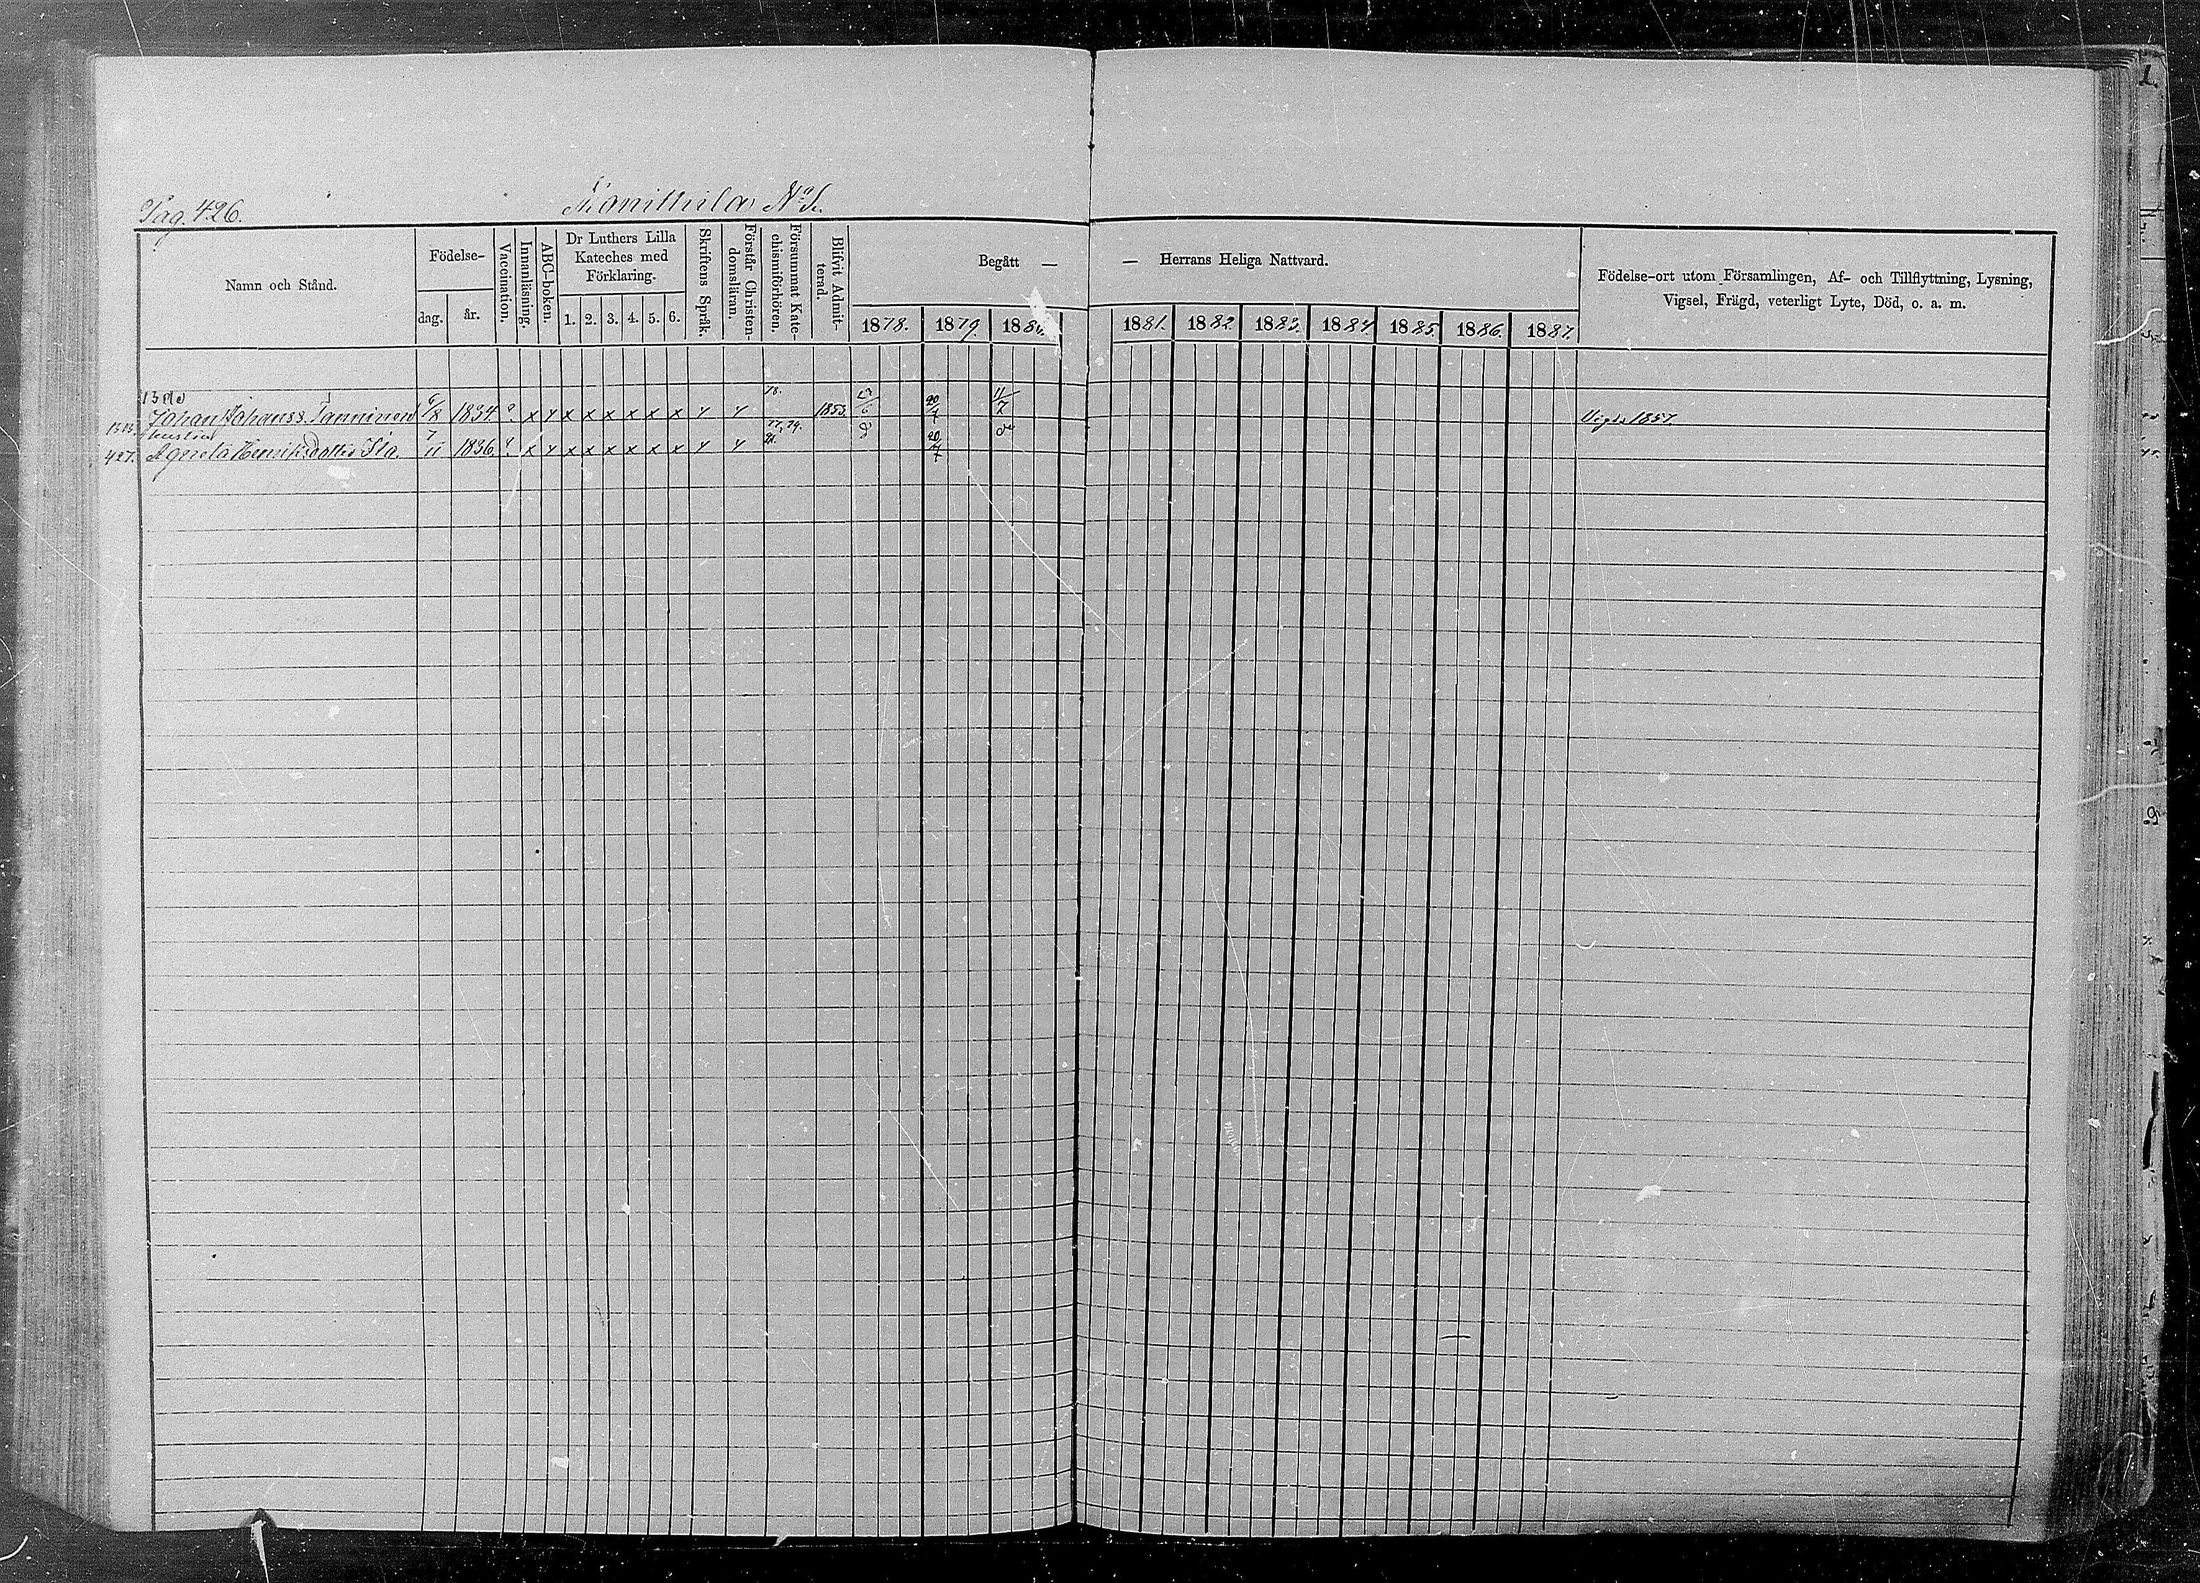 Pag. 426.
Namn och Stånd.
Födelse-
dag.
år.
Vaccination.
Innanläsning.
ABC-boken.
Dr Luthers Lilla
Kateches med
Förklaring.
1. 2. 3. 4. 5. 6.
Skriftens Språk.
Förstår Christen-
domsläran.
Försummat Kate-
chismiförhören.
Blifvit Admit-
terad.
Begått —
— Herrans Heliga Nattvard.
1878. 1879. 1880.
1881. 1882. 1883. 1884. 1885. 1886. 1887.
Födelse-ort utom Församlingen, Af- och Tillflyttning, Lysning,
Vigsel, Frägd, veterligt Lyte, Död, o. a. m.
78.
Johan Johanss. Tanninen 6/8 1834 ? x x x x x x x x 1853. 20/7 11/7 Vigde 1857.
hustru
427. Agneta Henriksdotter 7/11 1836 ? x x x x x x x x 20/7